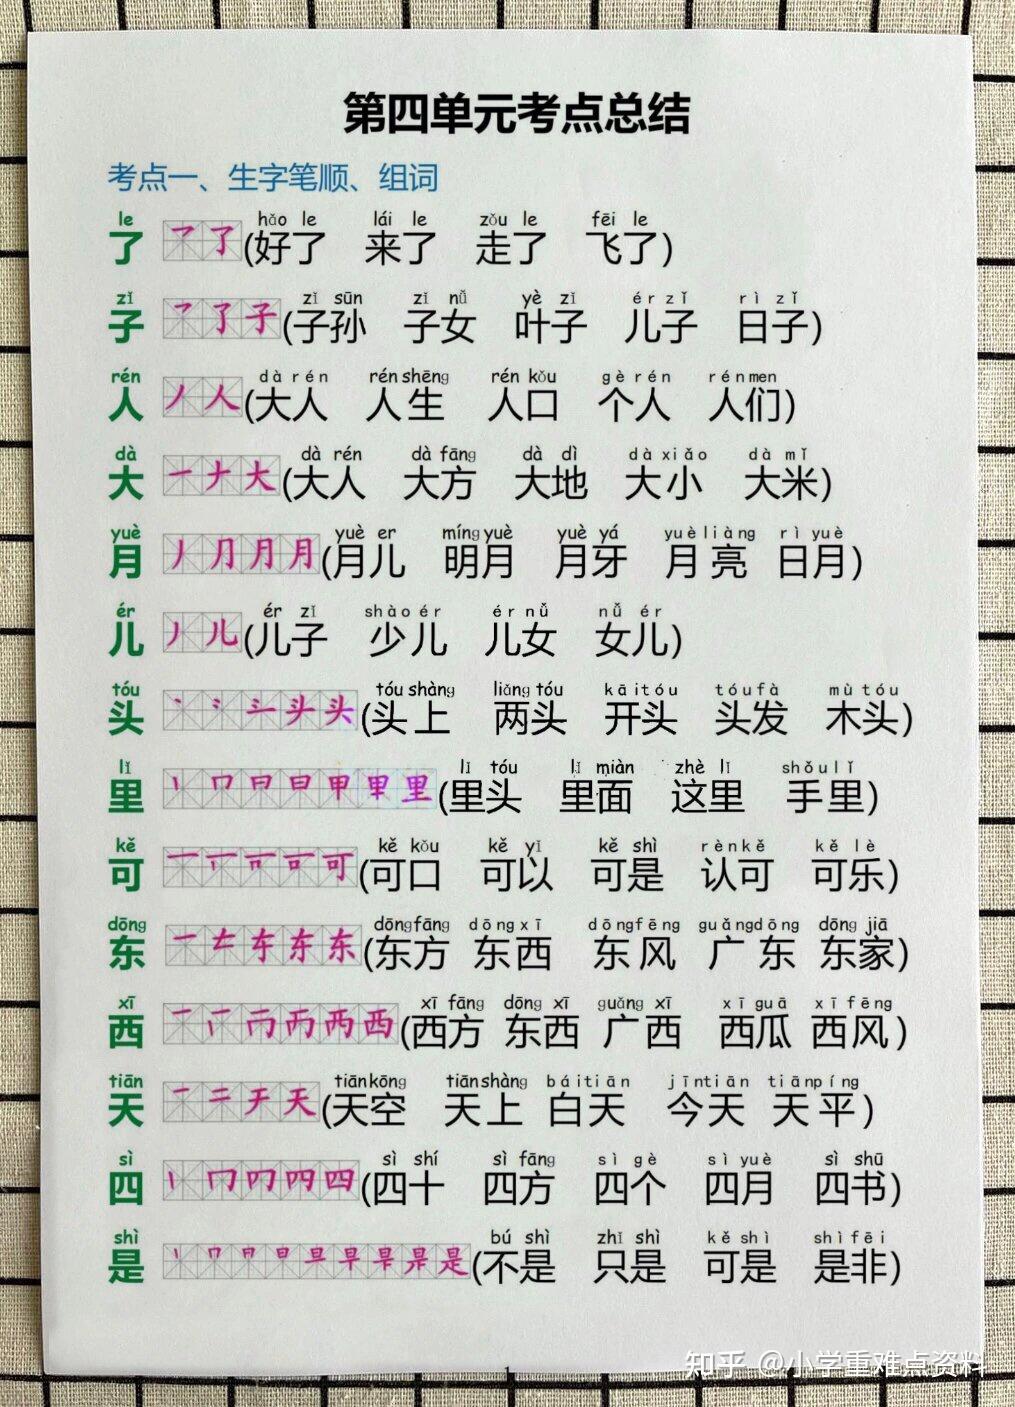 第四单元考点总结
考点一、生字笔顺、组词
le hǎo le lái le zǒu le fēi le
了 乛了(好了 来了 走了 飞了)
zǐ zǐ sūn zǐ nǚ yè zǐ ér zǐ rì zǐ
子 乛了子(子孙 子女 叶子 儿子 日子)
rén dà rén rén shēng rén kǒu gè rén rén men
人 丿人(大人 人生 人口 个人 人们)
dà dà rén dà fāng dà dì dà xiǎo dà mǐ
大 一ナ大(大人 大方 大地 大小 大米)
yuè yuè er míng yuè yuè yá yuè liàng rì yuè
月 丿⺆月月(月儿 明月 月牙 月亮 日月)
ér ér zǐ shào ér ér nǚ nǚ ér
儿 丿儿(儿子 少儿 儿女 女儿)
tóu tóu shàng liǎng tóu kāi tóu tóu fà mù tóu
头 头(头上 两头 开头 头发 木头)
lǐ lǐ tóu lǐ miàn zhè lǐ shǒu lǐ
里 丨冂日日甲里里(里头 里面 这里 手里)
kě kě kǒu kě yǐ kě shì rèn kě kě lè
可 一可(可口 可以 可是 认可 可乐)
dōng dōng fāng dōng xī dōng fēng guǎng dōng dōng jiā
东 一东东(东方 东西 东风 广东 东家)
xī xī fāng dōng xī guǎng xī xī guā xī fēng
西 一西西(西方 东西 广西 西瓜 西风)
tiān tiān kōng tiān shàng bái tiān jīn tiān tiān píng
天 一二天天(天空 天上 白天 今天 天平)
sì sì shí sì fāng sì gè sì yuè sì shū
四 丨冂四四(四十 四方 四个 四月 四书)
shì bú shì zhǐ shì kě shì shì fēi
是 丨冂日日旦早是是是(不是 只是 可是 是非)
1
知乎 @小学重难点资料